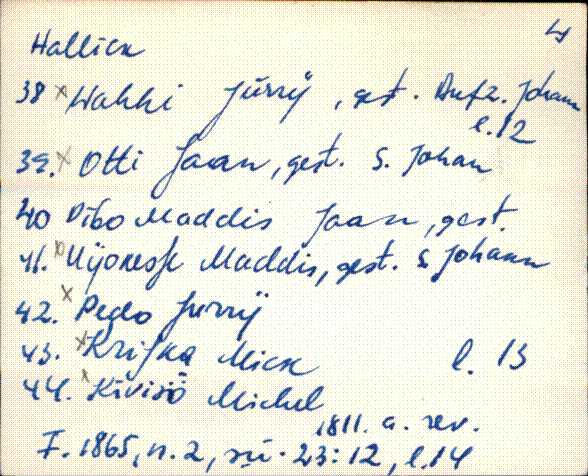 Hallick 4
38 x Wahhi Jürrÿ, gest. Aufz. Johann
l. 12
39. x Otti Jaan, gest. S. Johan
40 Pibo Maddis Jaan, gest.
41. Maddis, gest. S Johann
42. x Pedo Jurrÿ
43. x Mick l. 13
44. x Kivisö Michel
1811. a. rev.
F. 1865, n. 2, sü. 23:12, l. 14